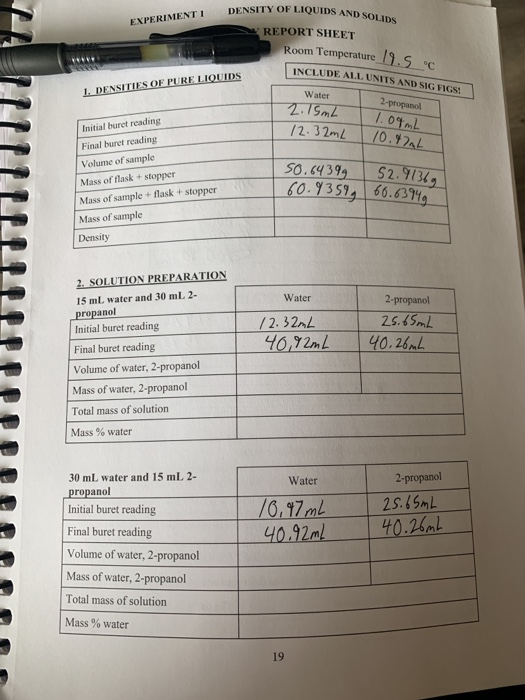 EXPERIMENT 1 DENSITY OF LIQUIDS AND SOLIDS
REPORT SHEET
Room Temperature 19.5 °C
1. DENSITIES OF PURE LIQUIDS
INCLUDE ALL UNITS AND SIG FIGS!
Water 2-propanol
Initial buret reading 2.15mL 1.09mL
Final buret reading 12.32mL
Volume of sample
Mass of flask + stopper 50.6439g 52.9136g
Mass of sample + flask + stopper 60.9359g 60.6394g
Mass of sample
Density
2. SOLUTION PREPARATION
15 mL water and 30 mL 2-propanol Water 2-propanol
Initial buret reading 12.32mL 25.65mL
Final buret reading 40,92mL 40.26mL
Volume of water, 2-propanol
Mass of water, 2-propanol
Total mass of solution
Mass % water
30 mL water and 15 mL 2-propanol Water 2-propanol
Initial buret reading 10,97mL 25.65mL
Final buret reading 40.92ml 40.26mL
Volume of water, 2-propanol
Mass of water, 2-propanol
Total mass of solution
Mass % water
19